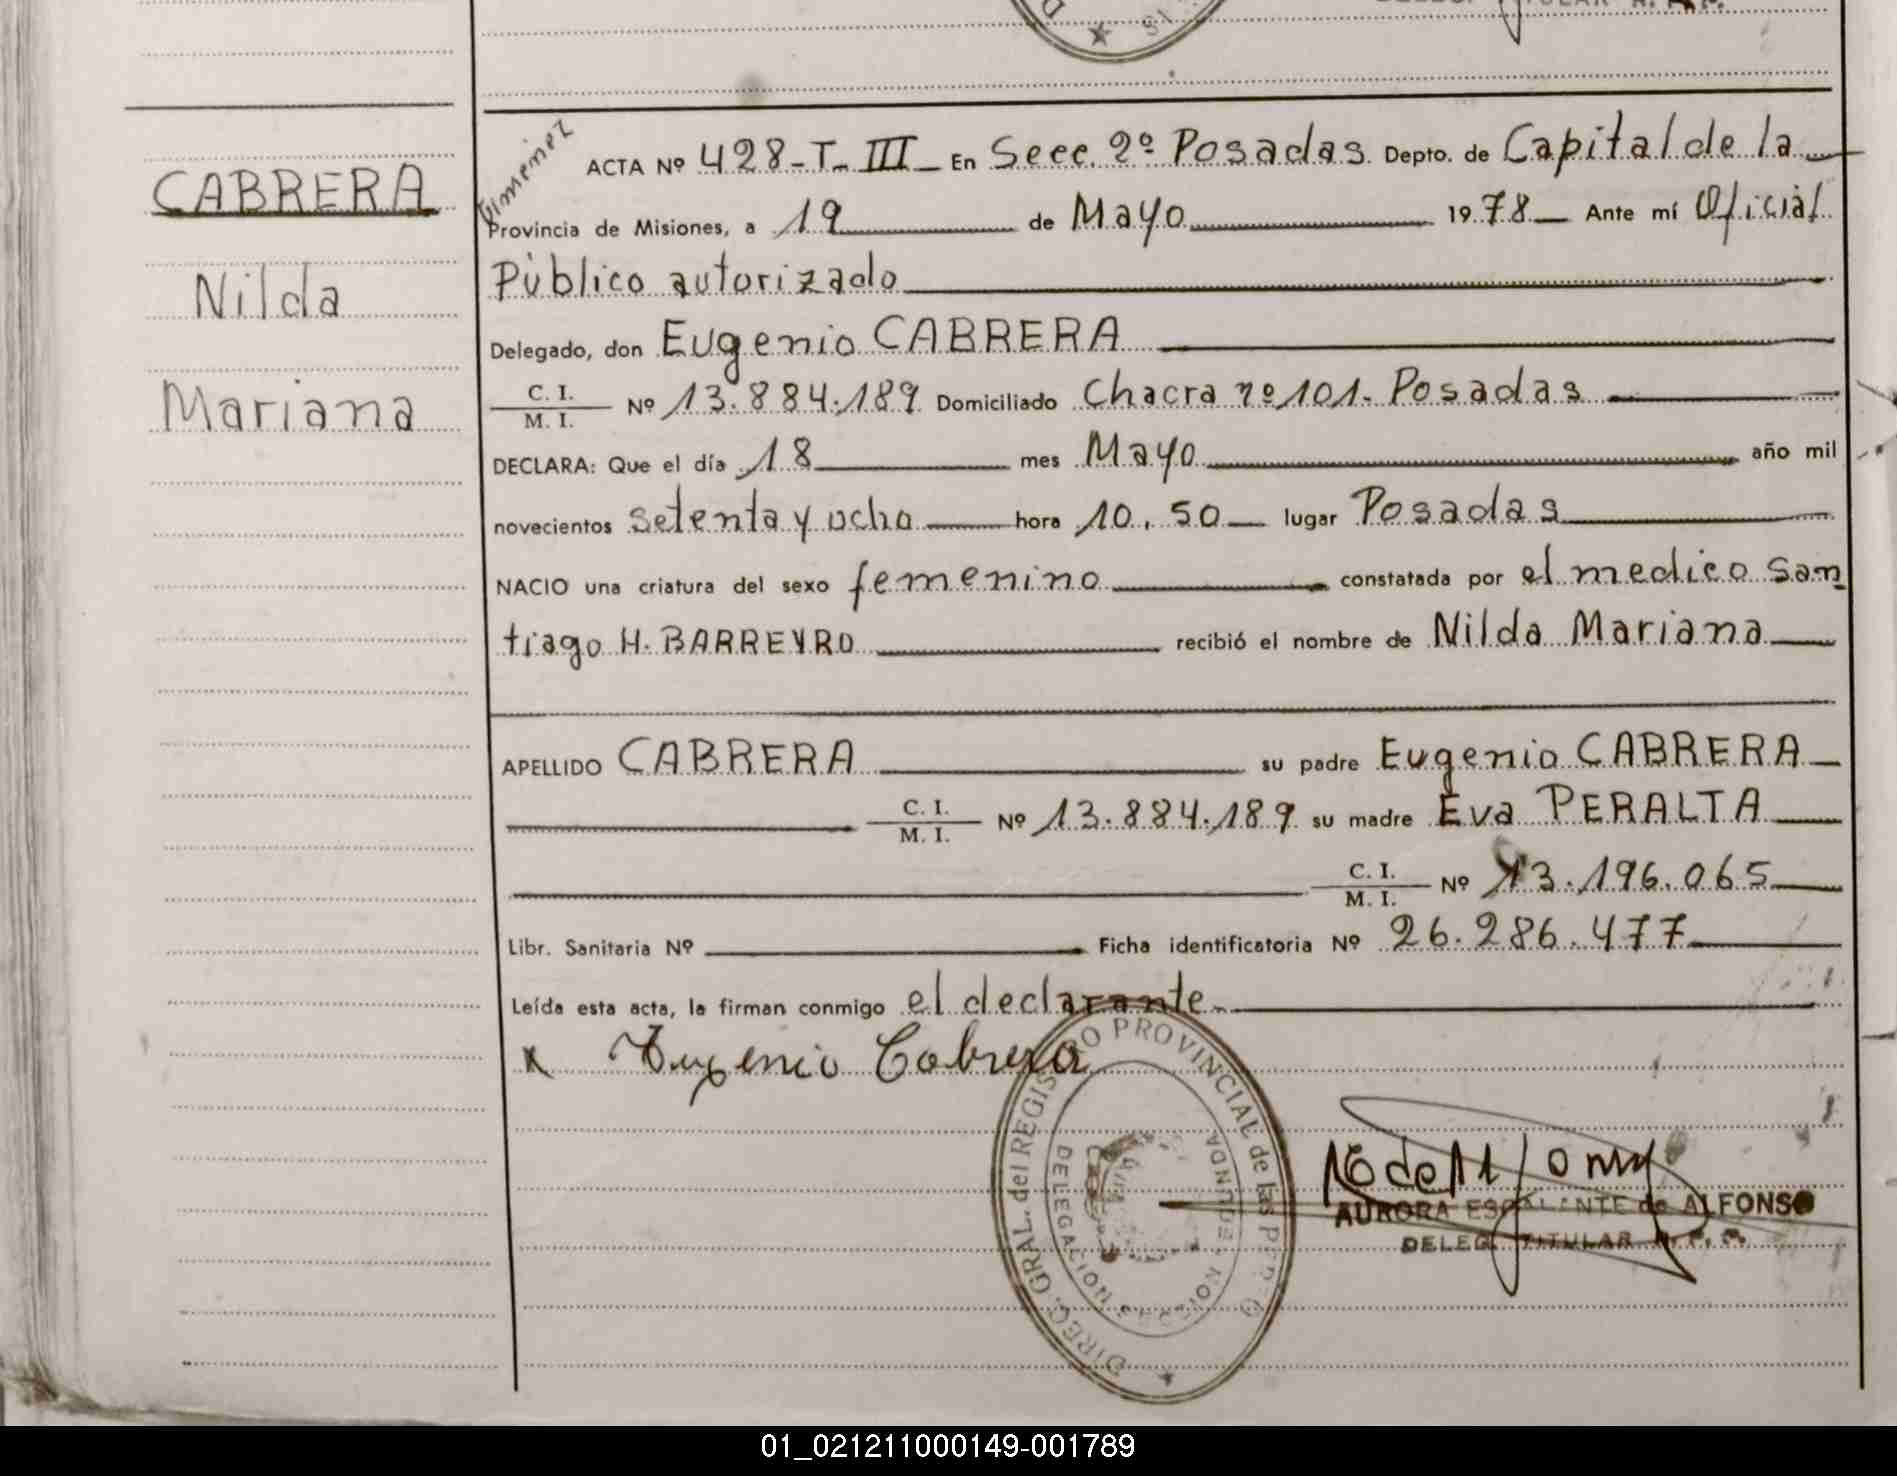 CABRERA
Nilda
Mariana
Gimenez
ACTA Nº 428-T-III En Secc. 2º Posadas Depto. de Capital de la
Provincia de Misiones, a 19 de Mayo 1978 Ante mí Oficial
Público autorizado
Delegado, don Eugenio CABRERA
C. I. / M. I. Nº 13.884.189 Domiciliado Chacra nº 101. Posadas
DECLARA: Que el día 18 mes Mayo año mil
novecientos setenta y ocho hora 10,50 lugar Posadas
NACIO una criatura del sexo femenino constatada por el medico San
tiago H. BARREYRO recibió el nombre de Nilda Mariana
APELLIDO CABRERA su padre Eugenio CABRERA
C. I. / M. I. Nº 13.884.189 su madre Eva PERALTA
C. I. / M. I. Nº 13.196.065
Libr. Sanitaria Nº Ficha identificatoria Nº 26.286.477
Leída esta acta, la firman conmigo el declarante.
x Eugenio Cabrera
DIREC. GRAL. del REGISTRO PROVINCIAL de las
DELEGACION SEGUNDA
AURORA ESCALANTE de ALFONSO
DELEG. TITULAR R. P. P.
01_021211000149-001789